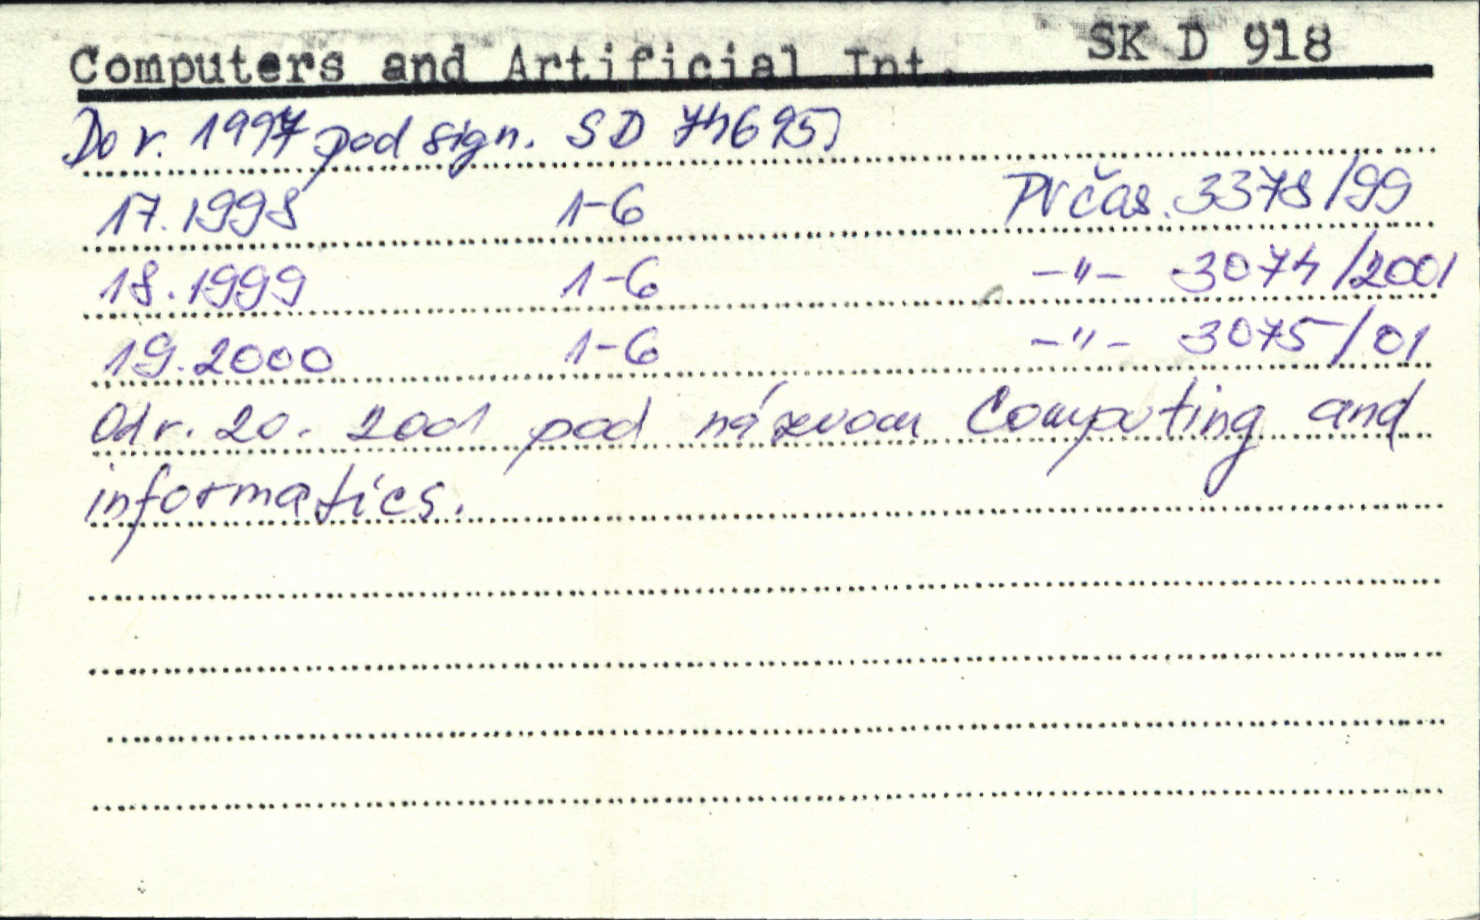 Computers and Artificial Int. SK D 918
Do r. 1997 pod sign. SD 74695
17.1998 1-6 Pr čas. 3378/99
18.1999 1-6 -"- 3074/2001
19.2000 1-6 -"- 3075/01
Od r. 20. 2001 pod názvom Computing and
informatics.